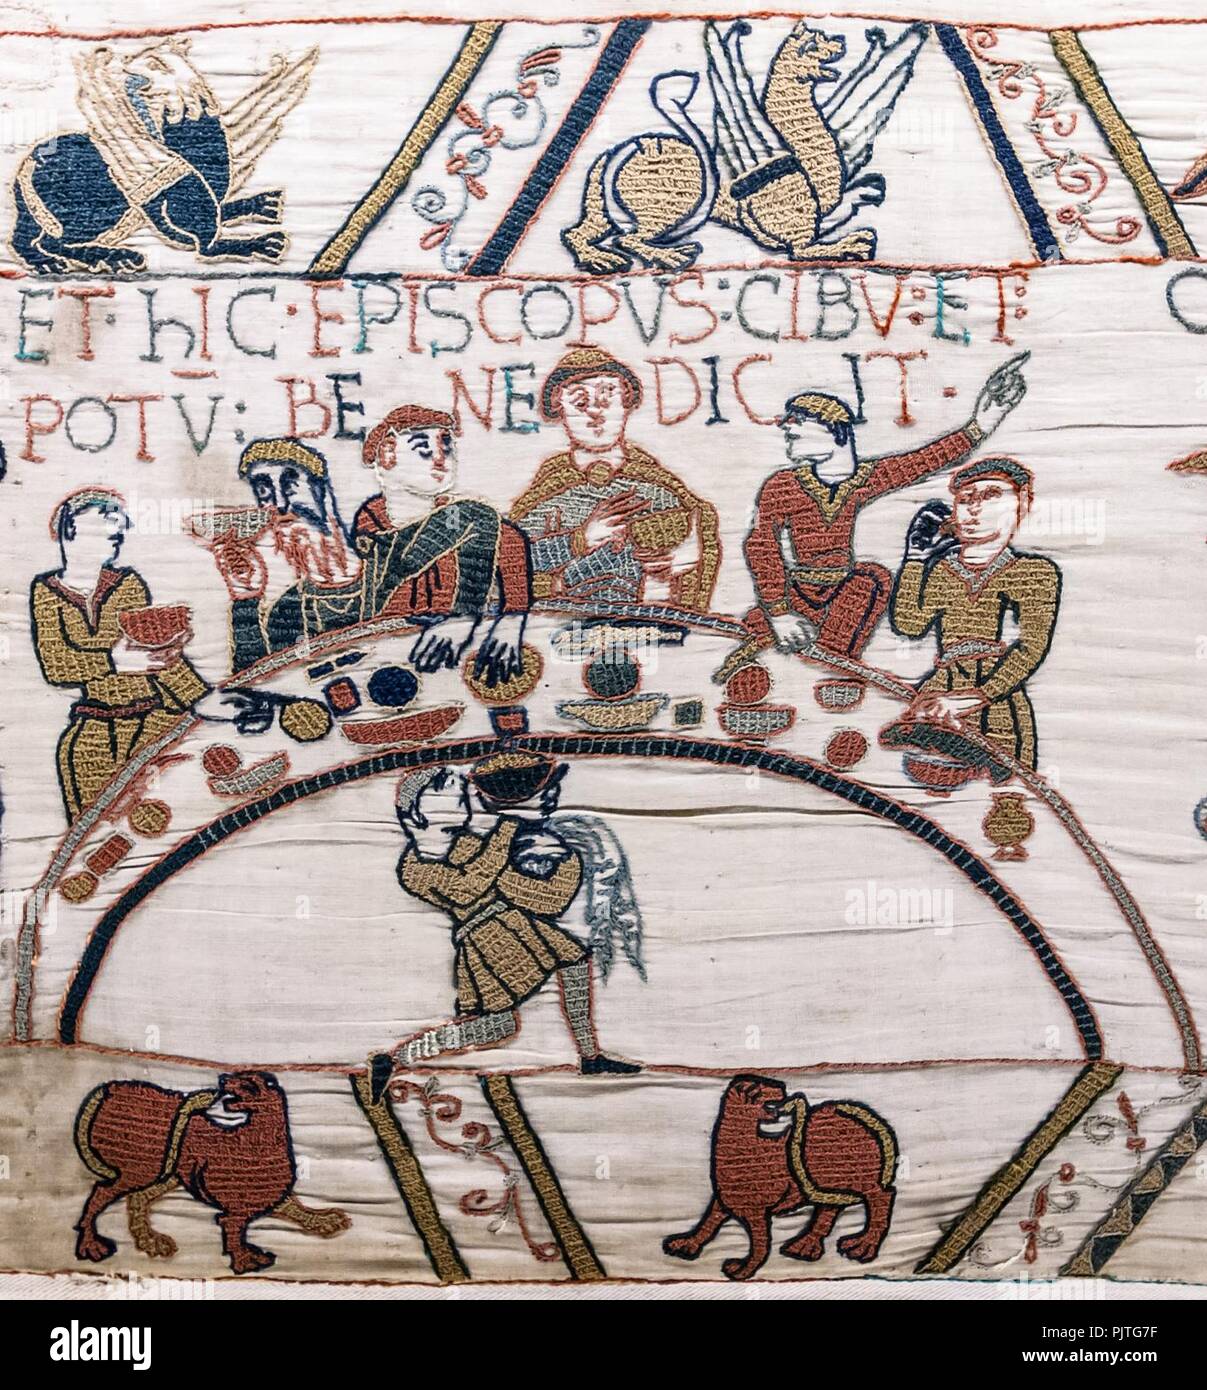 ET · hIC · EPISCOPVS : CIBV : ET :
POTV : BENEDICIT ·
C
alamy
a
alamy
alamy
Image ID: PJTG7F
www.alamy.com